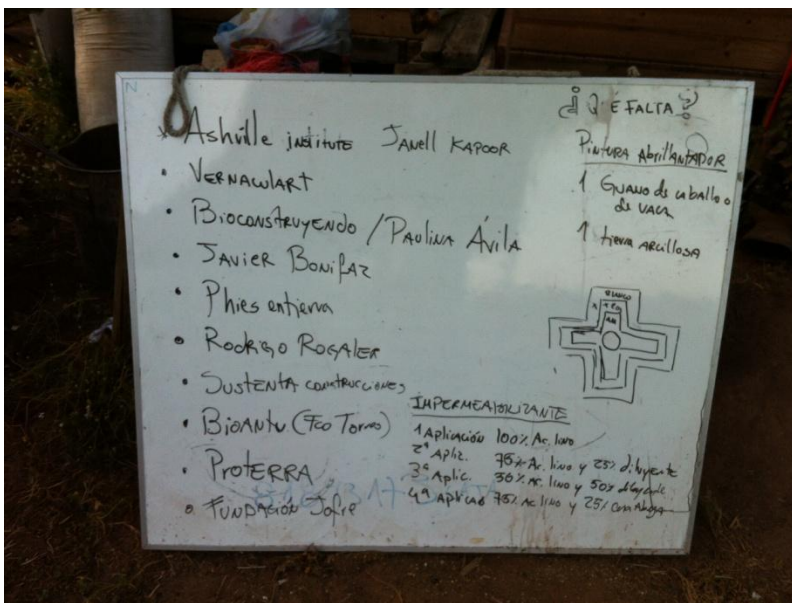 N
Ashville institute Janell Kapoor
• Vernaculart
• Bioconstruyendo / Paulina Ávila
• Javier Bonifaz
• Phies entierra
• Rodrigo Rogaler
• Sustenta construcciones
• Bioantu (Fco Torres)
• Proterra
• Fundación Jofre
¿Qué falta?
Pintura Abrillantador
1 Guano de caballo o
de vaca
1 tierra arcillosa
Blanco
Impermeabilizante
1 Aplicación 100% Ac. lino
2ª Aplic. 75% Ac. lino y 25% diluyente
3ª Aplic. 50% Ac. lino y 50% diluyente
4ª Aplicac 75% Ac lino y 25%